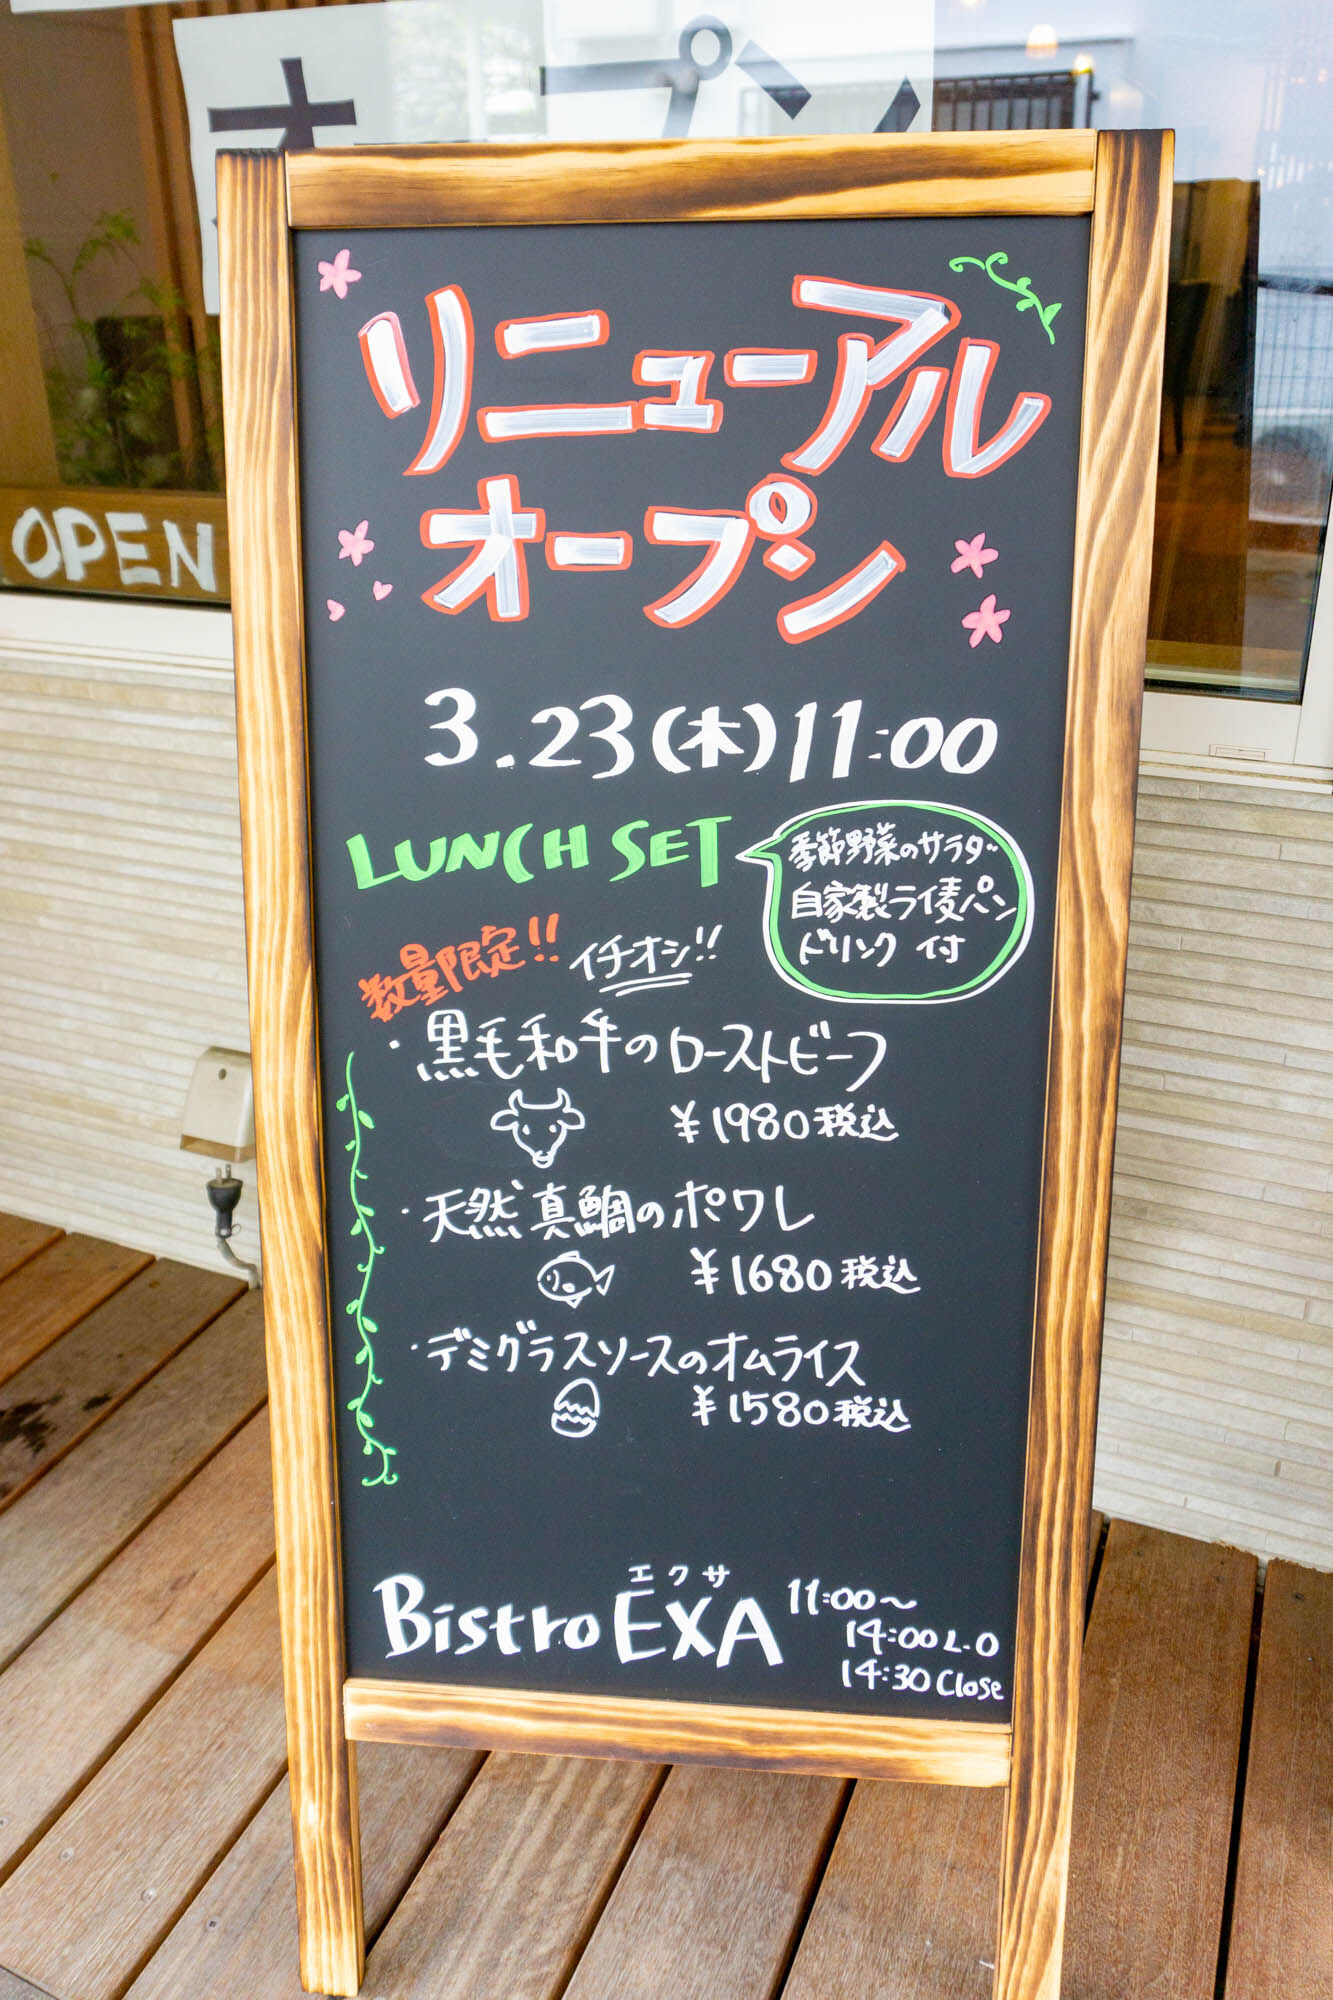 オープン
OPEN
リニューアル
オープン
3.23(木)11:00
LUNCH SET
季節野菜のサラダ
自家製ライ麦パン
ドリンク付
数量限定!! イチオシ!!
・黒毛和牛のローストビーフ
¥1980税込
・天然真鯛のポワレ
¥1680税込
・デミグラスソースのオムライス
¥1580税込
エクサ
Bistro EXA
11:00～
14:00 L.O
14:30 Close